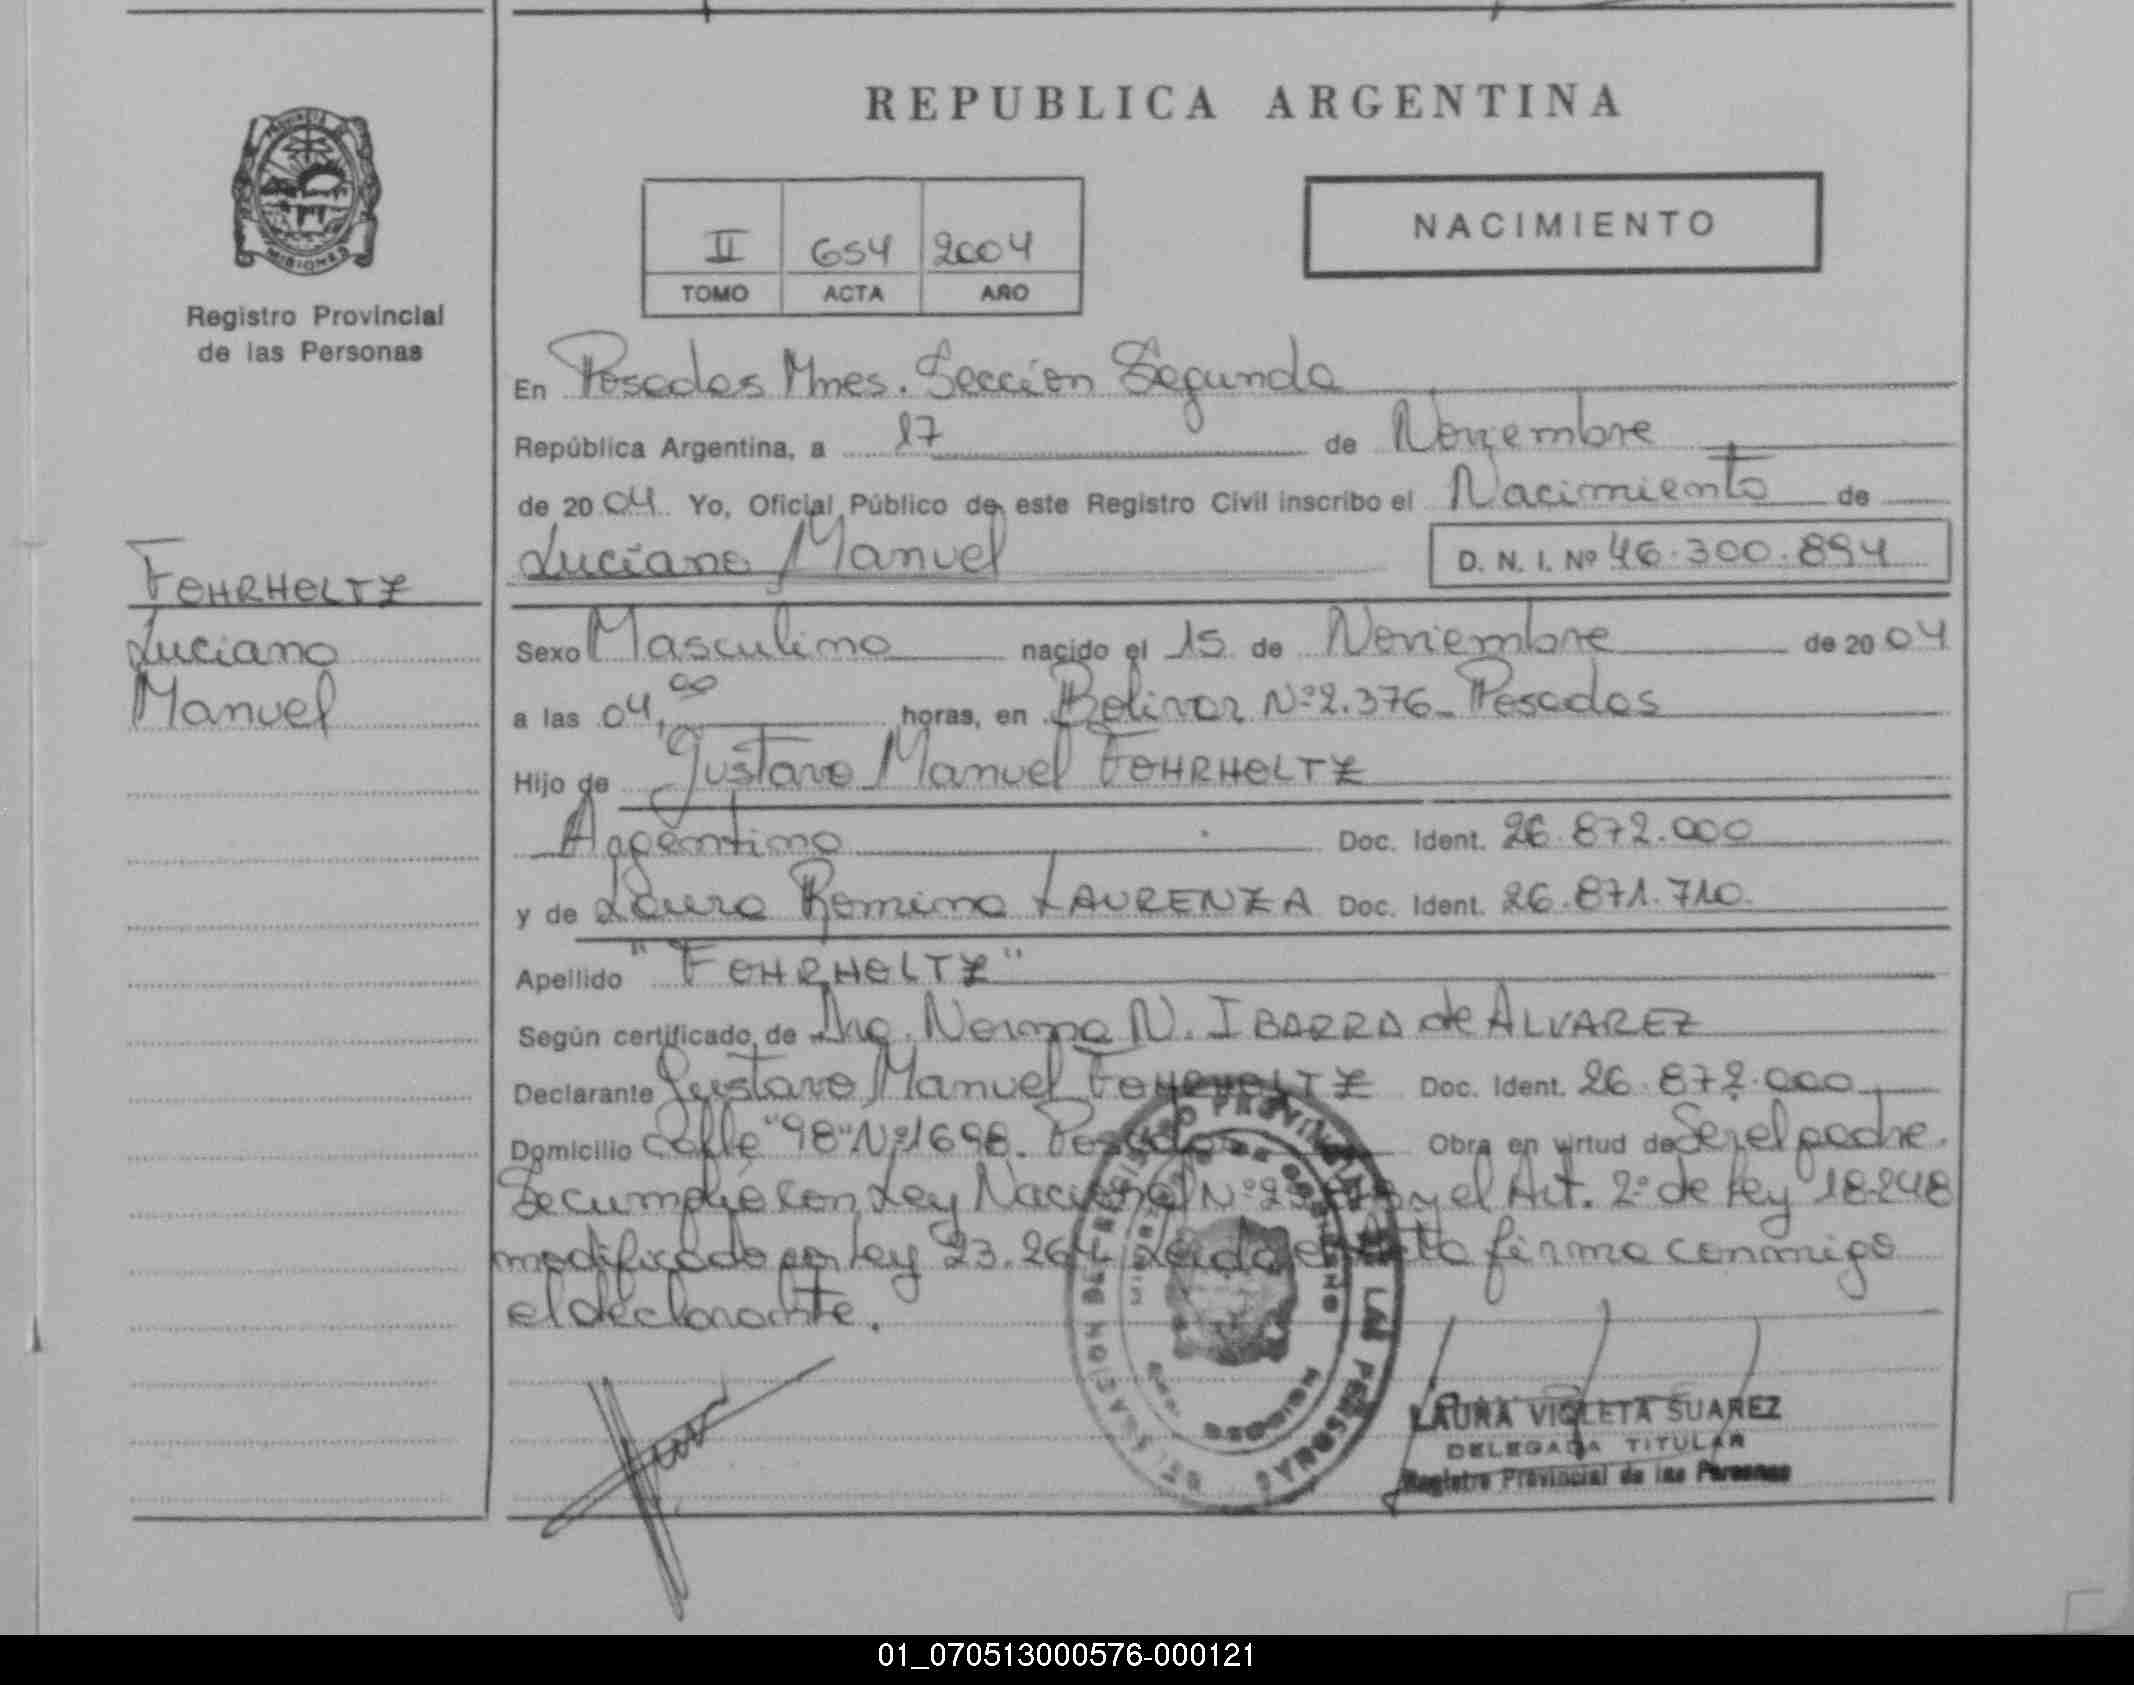 REPUBLICA ARGENTINA
PROVINCIA DE MISIONES
Registro Provincial
de las Personas
NACIMIENTO
II 654 2004
TOMO ACTA AÑO
En Posadas Mnes. Sección Segunda
República Argentina, a 17 de Noviembre
de 2004 Yo, Oficial Público de este Registro Civil inscribo el Nacimiento de
Luciano Manuel D. N. I. Nº 46.300.894
FEHRHOLTZ
Luciano
Manuel
Sexo Masculino nacido el 15 de Noviembre de 2004
a las 04,00 horas, en Bolivar Nº 2.376 - Posadas
Hijo de Gustavo Manuel FEHRHOLTZ
Argentino Doc. Ident. 26.872.000
y de Laura Romina LAURENZA Doc. Ident. 26.871.710.
Apellido "FEHRHOLTZ"
Según certificado de Dra. Norma N. IBARRA de ALVAREZ
Declarante Gustavo Manuel FEHRHOLTZ Doc. Ident. 26.872.000
Domicilio Calle "98" Nº 1698. Posadas Obra en virtud de Ser el padre.
Se cumplió con Ley Nacional Nº y el Art. 2º de Ley 18.248
modificado por ley 23.264 Leida el Acta firma conmigo
el declarante.
REGISTRO PROVINCIAL DE LAS PERSONAS
MISIONES
LAURA VIOLETA SUAREZ
DELEGADA TITULAR
Registro Provincial de las Personas
01_070513000576-000121